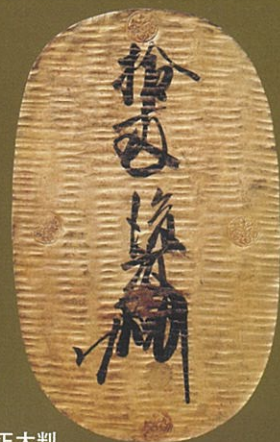 拾両
後藤
正大判